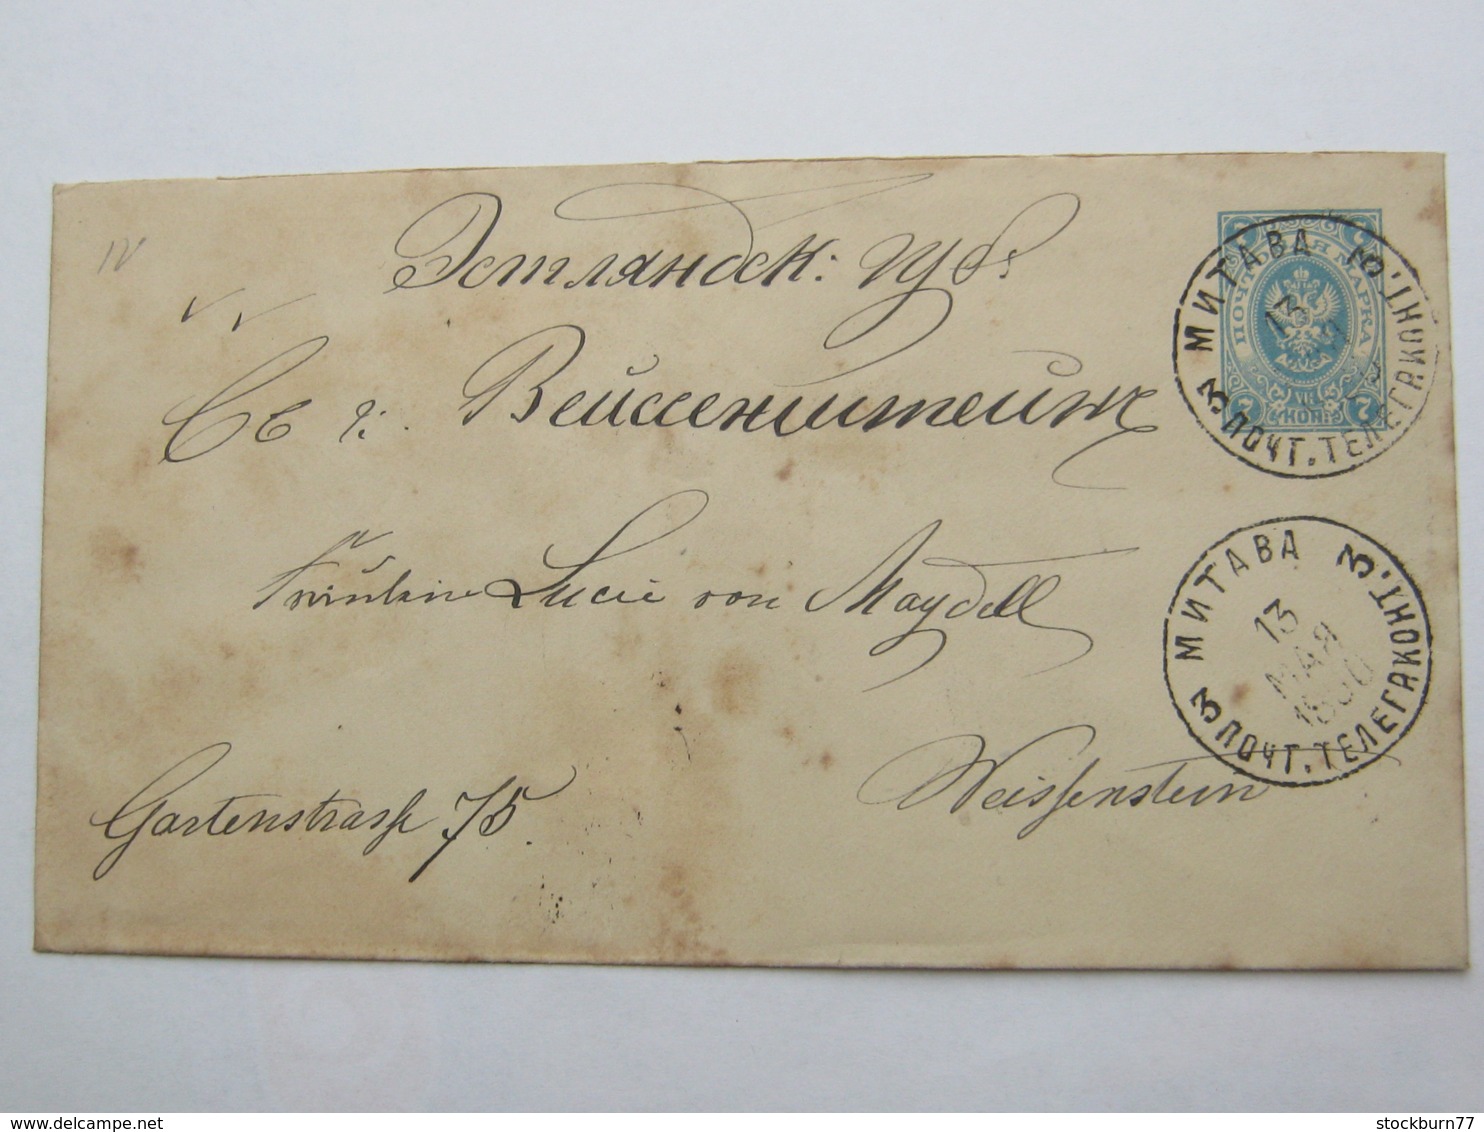 Эстляндск: губ.
Въ г: Вейссенштейнъ
Fräulein Lucie von Maydell
Weissenstein
Gartenstrasse 75
ПОЧТОВАЯ МАРКА
7 7
7 КОП. 7
МИТАВА
3 ПОЧТ. ТЕЛЕГР. КОНТ. 3
13
МИТАВА
3 ПОЧТ. ТЕЛЕГР. КОНТ. 3
13
МАЯ
1890
https://www.delcampe.net
stockburn77